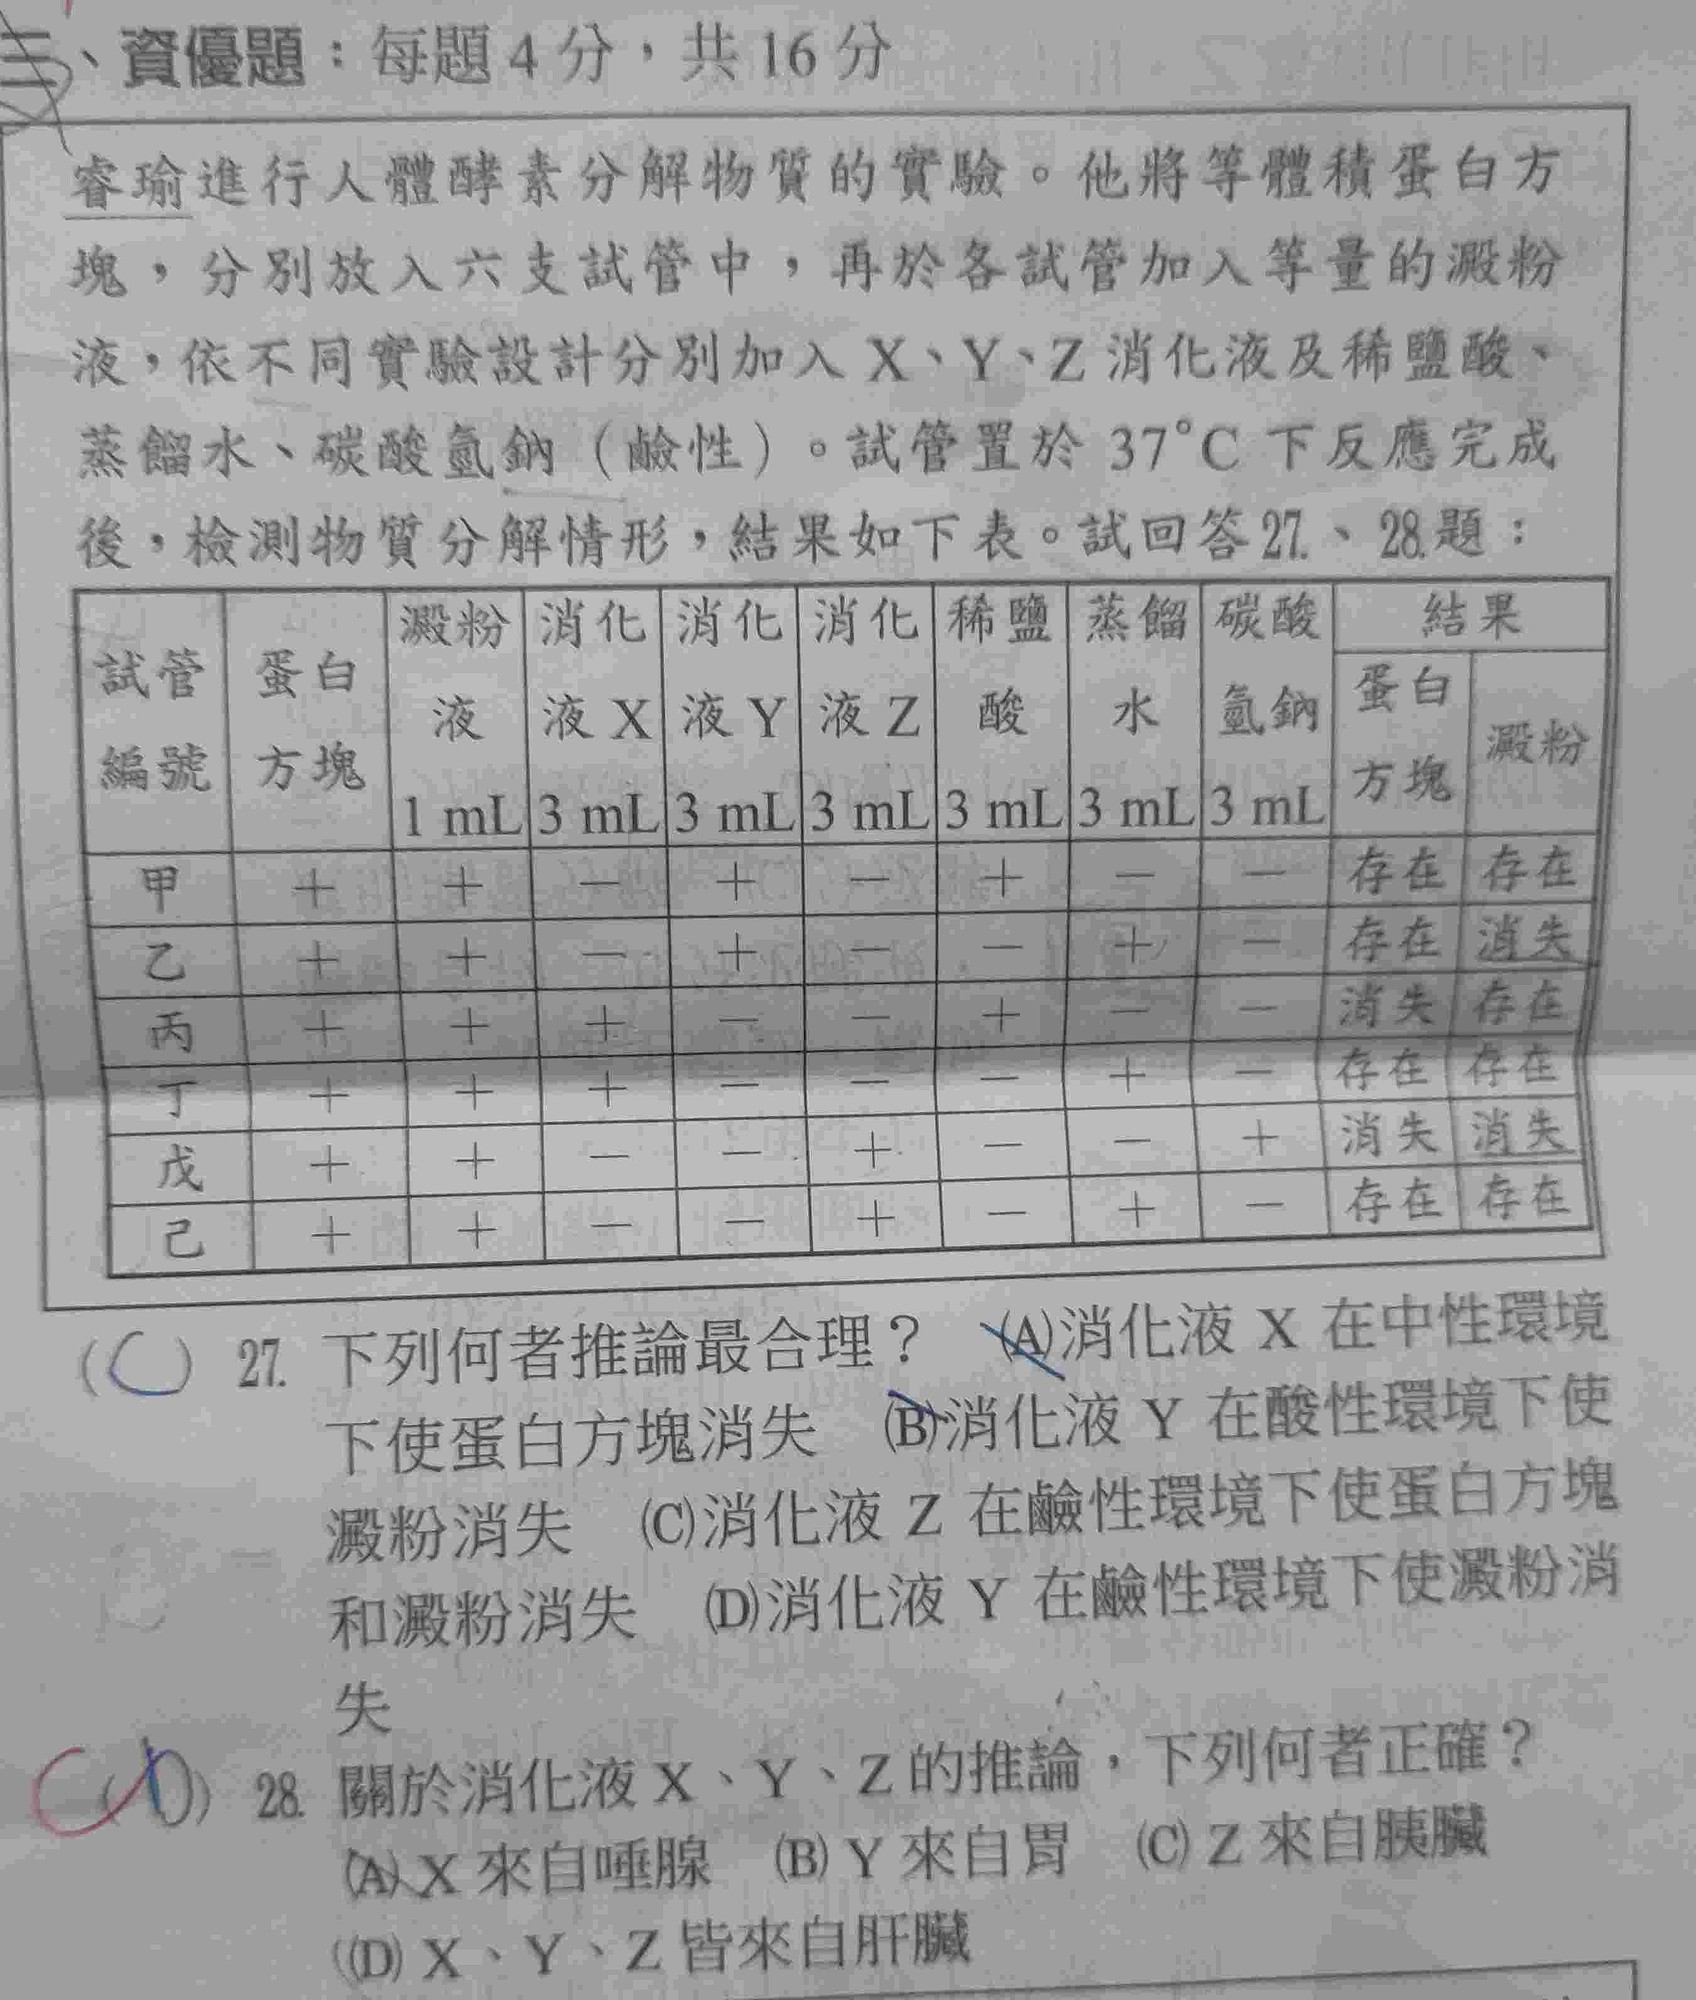 三、資優題：每題 4 分，共 16 分
睿瑜進行人體酵素分解物質的實驗。他將等體積蛋白方
塊，分別放入六支試管中，再於各試管加入等量的澱粉
液，依不同實驗設計分別加入 X、Y、Z 消化液及稀鹽酸、
蒸餾水、碳酸氫鈉（鹼性）。試管置於 37°C 下反應完成
後，檢測物質分解情形，結果如下表。試回答27.、28.題：
試管編號 蛋白方塊 澱粉液 1 mL 消化液 X 3 mL 消化液 Y 3 mL 消化液 Z 3 mL 稀鹽酸 3 mL 蒸餾水 3 mL 碳酸氫鈉 3 mL 結果 蛋白方塊 澱粉
甲 ＋ ＋ － ＋ － ＋ － － 存在 存在
乙 ＋ ＋ － ＋ － － ＋ － 存在 消失
丙 ＋ ＋ ＋ － － ＋ － － 消失 存在
丁 ＋ ＋ ＋ － － － ＋ － 存在 存在
戊 ＋ ＋ － － ＋ － － ＋ 消失 消失
己 ＋ ＋ － － ＋ － ＋ － 存在 存在
(C) 27. 下列何者推論最合理？ (A)消化液 X 在中性環境
下使蛋白方塊消失 (B)消化液 Y 在酸性環境下使
澱粉消失 (C)消化液 Z 在鹼性環境下使蛋白方塊
和澱粉消失 (D)消化液 Y 在鹼性環境下使澱粉消
失
( ) 28. 關於消化液 X、Y、Z 的推論，下列何者正確？
(A) X 來自唾腺 (B) Y 來自胃 (C) Z 來自胰臟
(D) X、Y、Z 皆來自肝臟